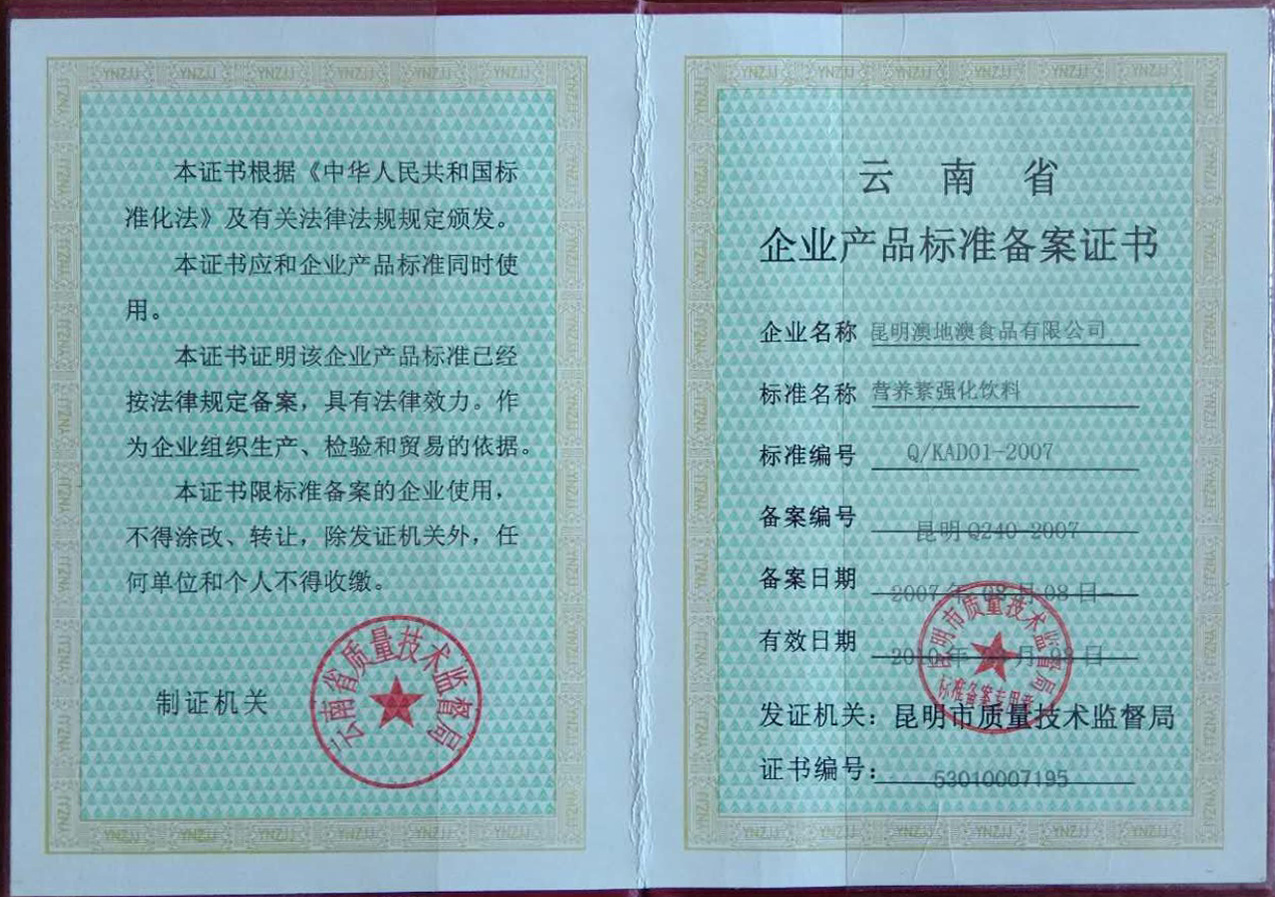 本证书根据《中华人民共和国标
准化法》及有关法律法规规定颁发。
本证书应和企业产品标准同时使
用。
本证书证明该企业产品标准已经
按法律规定备案，具有法律效力。作
为企业组织生产、检验和贸易的依据。
本证书限标准备案的企业使用，
不得涂改、转让，除发证机关外，任
何单位和个人不得收缴。
制证机关
云南省质量技术监督局
云南省
企业产品标准备案证书
企业名称 昆明澳地澳食品有限公司
标准名称 营养素强化饮料
标准编号 Q/KAD01-2007
备案编号 昆明Q240-2007
备案日期 2007年 08月08日
有效日期 2010年 月08日
昆明市质量技术监督局
标准备案专用章
发证机关：昆明市质量技术监督局
证书编号：53010007195